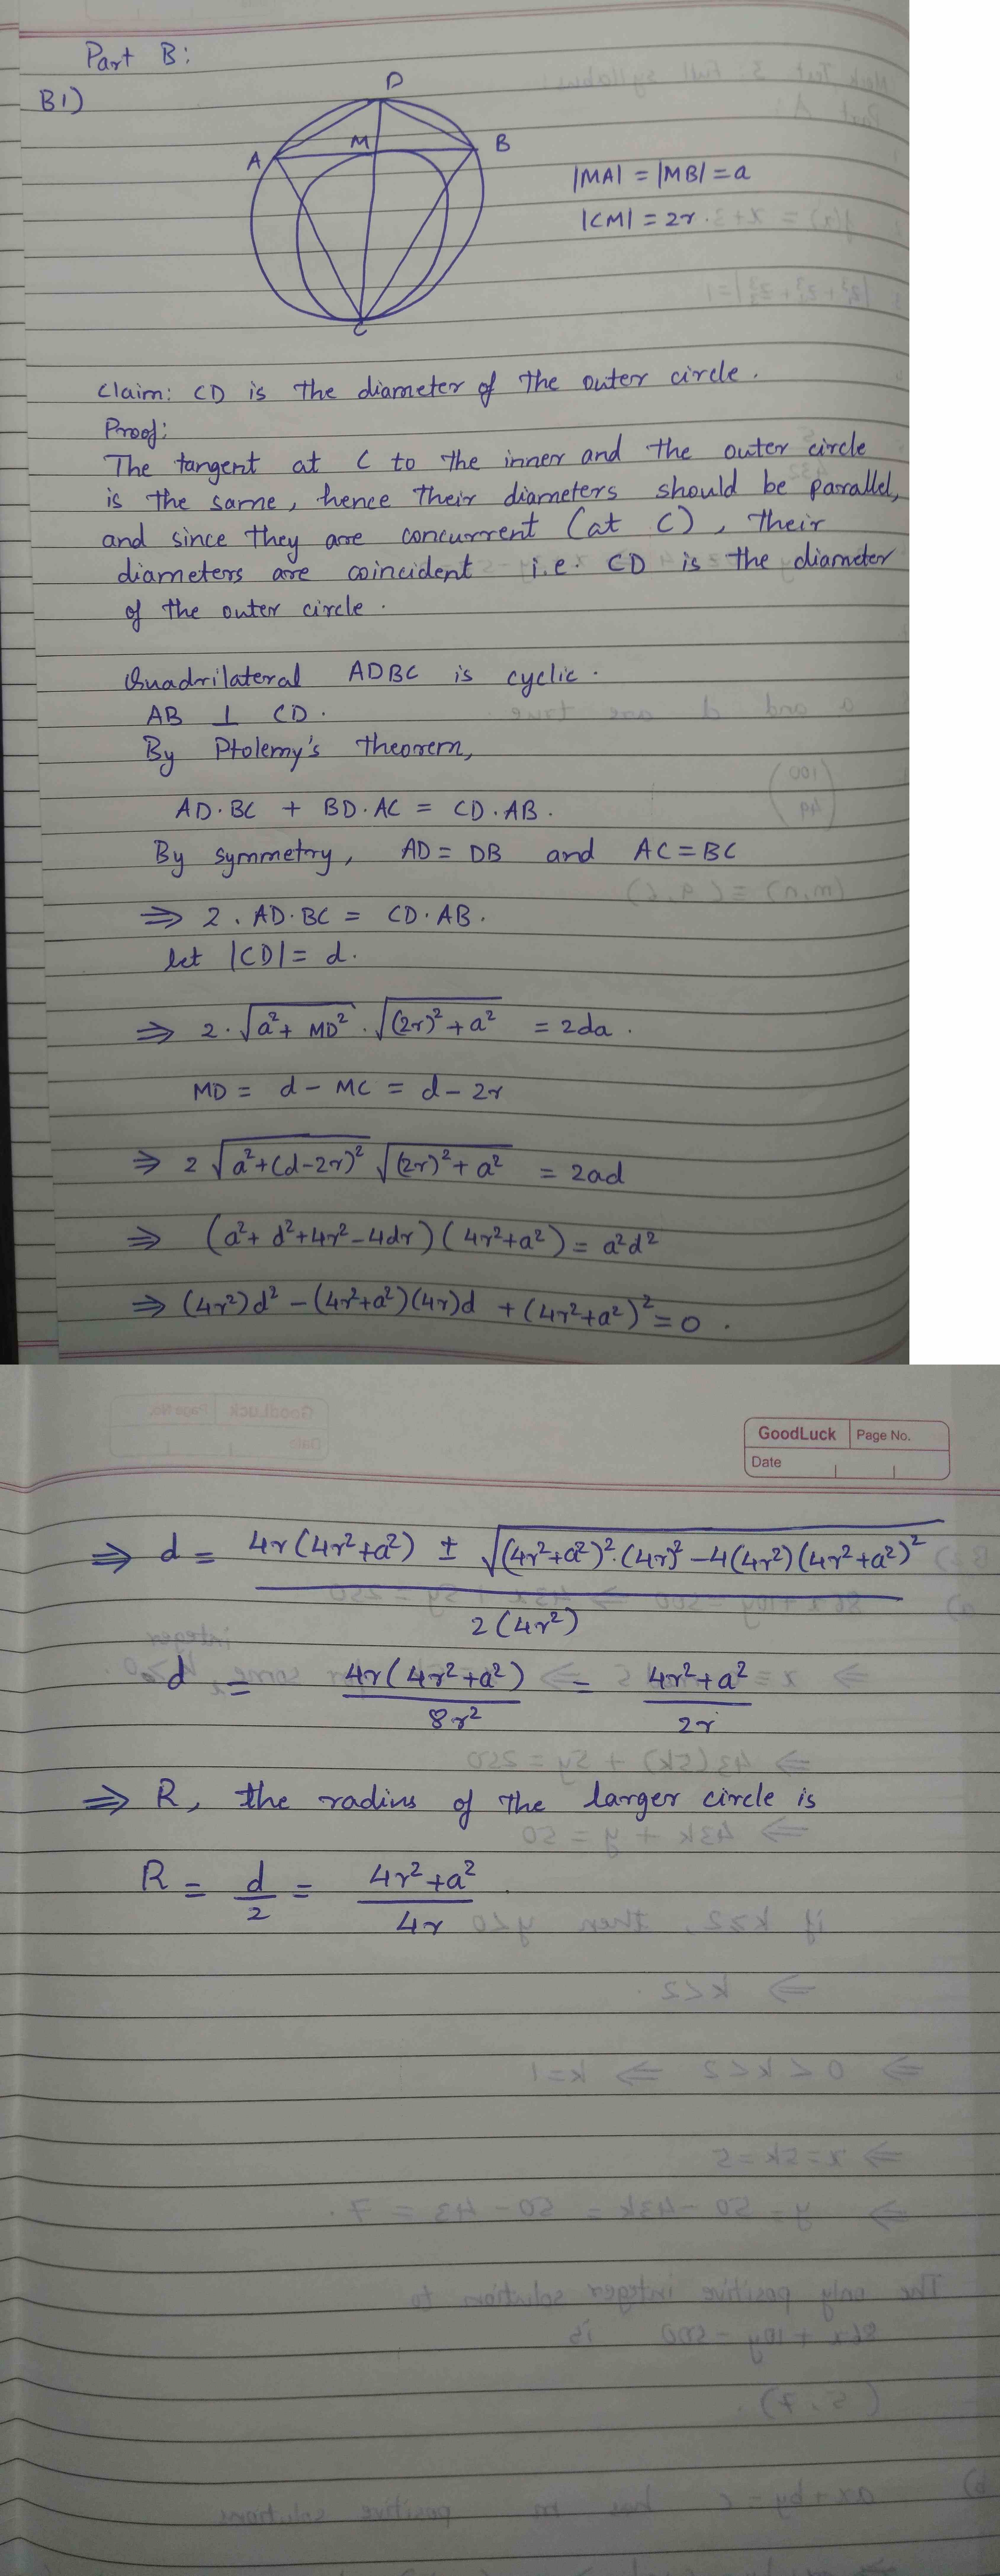 Part B:
B1)
D
A M B
C
|MA| = |MB| = a
|CM| = 2r.
Claim: CD is the diameter of the outer circle.
Proof:
The tangent at C to the inner and the outer circle
is the same, hence their diameters should be parallel,
and since they are concurrent (at C), their
diameters are coincident i.e. CD is the diameter
of the outer circle.
Quadrilateral ADBC is cyclic.
AB ⊥ CD.
By Ptolemy's Theorem,
AD·BC + BD·AC = CD·AB.
By symmetry, AD = DB and AC = BC
⇒ 2·AD·BC = CD·AB.
let |CD| = d.
⇒ 2·√(a²+ MD²)·√((2r)²+a²) = 2da.
MD = d - MC = d - 2r
⇒ 2 √(a²+(d-2r)²) √((2r)²+a²) = 2ad
⇒ (a²+ d²+4r²-4dr)(4r²+a²) = a²d²
⇒ (4r²)d² - (4r²+a²)(4r)d + (4r²+a²)² = 0.
GoodLuck Page No.
Date
⇒ d = (4r(4r²+a²) ± √((4r²+a²)²·(4r)² - 4(4r²)(4r²+a²)²)) / 2(4r²)
d = 4r(4r²+a²) / 8r² = (4r²+a²) / 2r
⇒ R, the radius of the larger circle is
R = d/2 = (4r²+a²) / 4r.